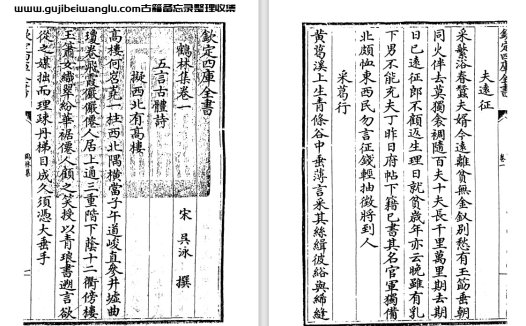 www.gujibeiwanglu.com古籍备忘录整理收集
欽定四庫全書
鶴林集卷一
宋 吳泳 撰
五言古體詩
擬西北有高樓
高樓何宮嵬一柱西北隅橫當子午道峻直參井墟曲
瓊卷飛霞儼儼僊人居上通三重階下蔭十二衢傍樓
玉蕭女嬙翠紛華裾僊人顧之笑授以青琅書遡言欲
從之媒拙而理疎丹梯目成久須憑大垂手
欽定四庫全書
夫遠征
采蘩浴春蠶夫婿今遠離貧無金釵別愁有玉筯垂朝
同火伴去莫獨衾裯隨百夫十夫長千里萬里期去期
日已遠征郎不顧返生理日就貧歲年亦云晚雖有乳
下男不能充夫丁昨日府帖下籍已書其名官軍獨備
北頗恤東西民勿言征錢輕抽徵將到人
采葛行
黃葛溪上生青條谷中垂薄言采其絲緝彼綌與締縫